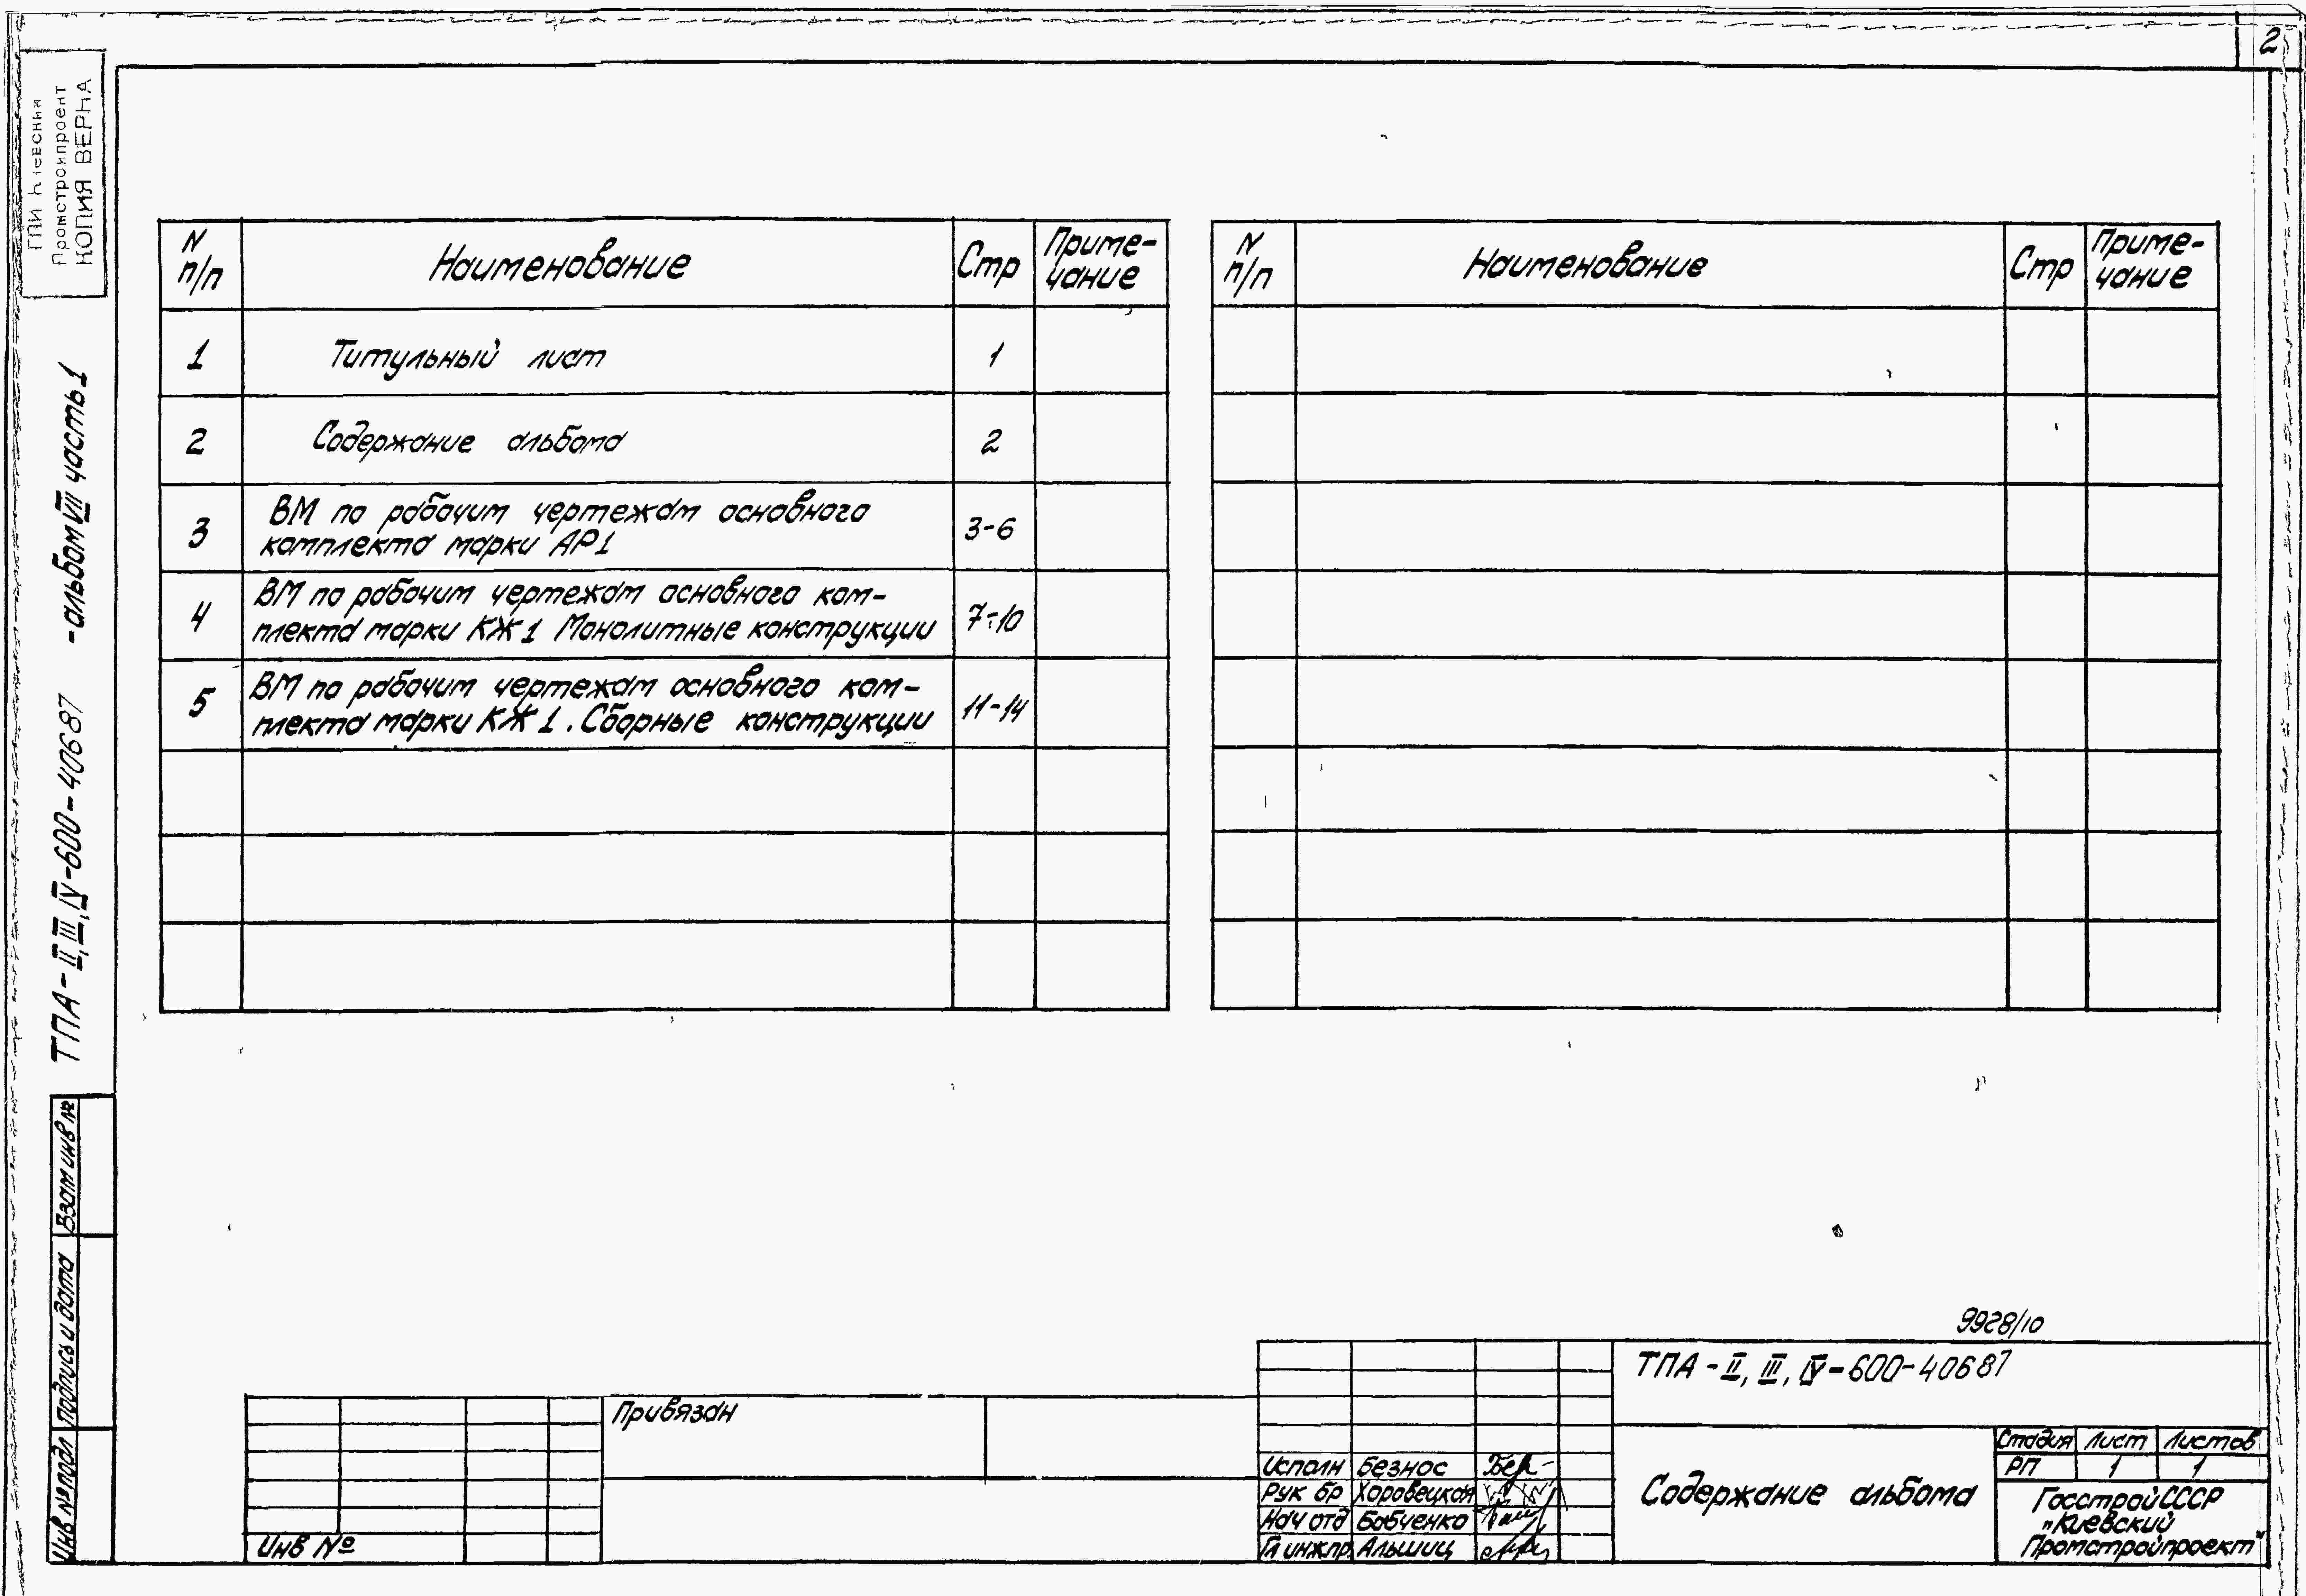 2
ГПИ Киевский
Промстройпроект
КОПИЯ ВЕРНА
ТПА-II,III,IV-600-40687 -альбом VII часть 1
N п/п Наименование Стр Приме-
чание
1 Титульный лист 1
2 Содержание альбома 2
3 ВМ по рабочим чертежам основного
комплекта марки АР1 3-6
4 ВМ по рабочим чертежам основного ком-
плекта марки КЖ1 Монолитные конструкции 7-10
5 ВМ по рабочим чертежам основного ком-
плекта марки КЖ1. Сборные конструкции 11-14
N п/п Наименование Стр Приме-
чание
Взам инв №
Подпись и дата
Инв № подл
Привязан
Инв №
9928/10
ТПА-II, III, IV-600-40687
Исполн Безнос
Рук бр Хоровецкая
Нач отд Бабченко
Гл инж пр. Альшиц
Содержание альбома
Стадия Лист Листов
РП 1 1
Госстрой СССР
„Киевский
Промстройпроект"